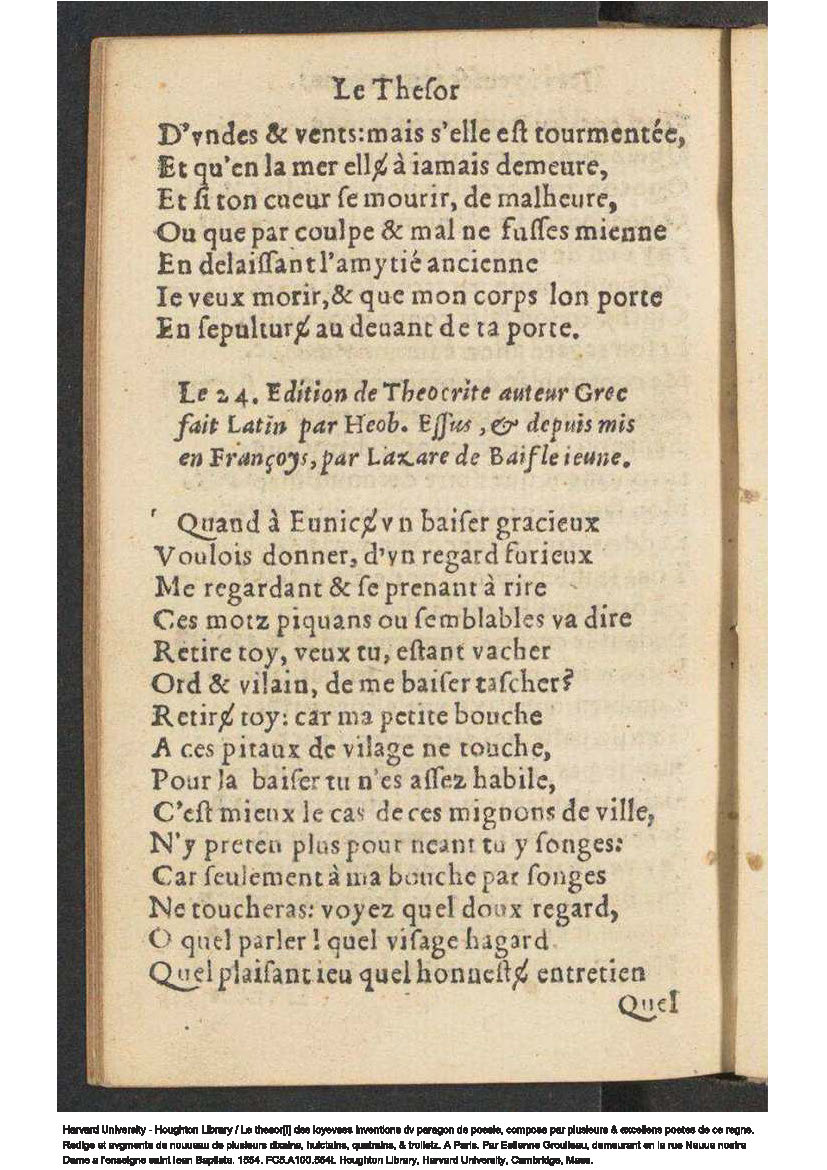 Le Theſor
D'vndes & vents:mais s'elle eſt tourmentée,
Et qu'en la mer ellɇ à iamais demeure,
Et ſi ton cueur ſe mourir, de malheure,
Ou que par coulpe & mal ne fuſſes mienne
En delaiſſant l'amytié ancienne
Ie veux morir,& que mon corps lon porte
En ſepulturɇ au deuant de ta porte.
Le 24. Edition de Theocrite auteur Grec
fait Latin par Heob. Eſſus, & depuis mis
en Françoys, par Lazare de Baif le ieune.
Quand à Eunicɇ vn baiſer gracieux
Voulois donner, d'vn regard furieux
Me regardant & ſe prenant à rire
Ces motz piquans ou ſemblables va dire
Retire toy, veux tu, eſtant vacher
Ord & vilain, de me baiſer taſcher?
Retirɇ toy: car ma petite bouche
A ces pitaux de vilage ne touche,
Pour la baiſer tu n'es aſſez habile,
C'eſt mieux le cas de ces mignons de ville,
N'y preten plus pour neant tu y ſonges:
Car ſeulement à ma bouche par ſonges
Ne toucheras: voyez quel doux regard,
O quel parler! quel viſage hagard
Quel plaiſant ieu quel honneſtɇ entretien
Quel
Harvard University - Houghton Library / Le thesor[!] des ioyevses inventions dv paragon de poesie, compose par plusieurs & excellens poetes de ce regne.
Redige et avgmente de nouueau de plusieurs dixains, huictains, quatrains, & trolletz. A Paris. Par Estienne Groulleau, demeurant en la rue Neuue nostre
Dame a l'enseigne saint Iean Baptiste. 1554. FC5.A100.554t. Houghton Library, Harvard University, Cambridge, Mass.